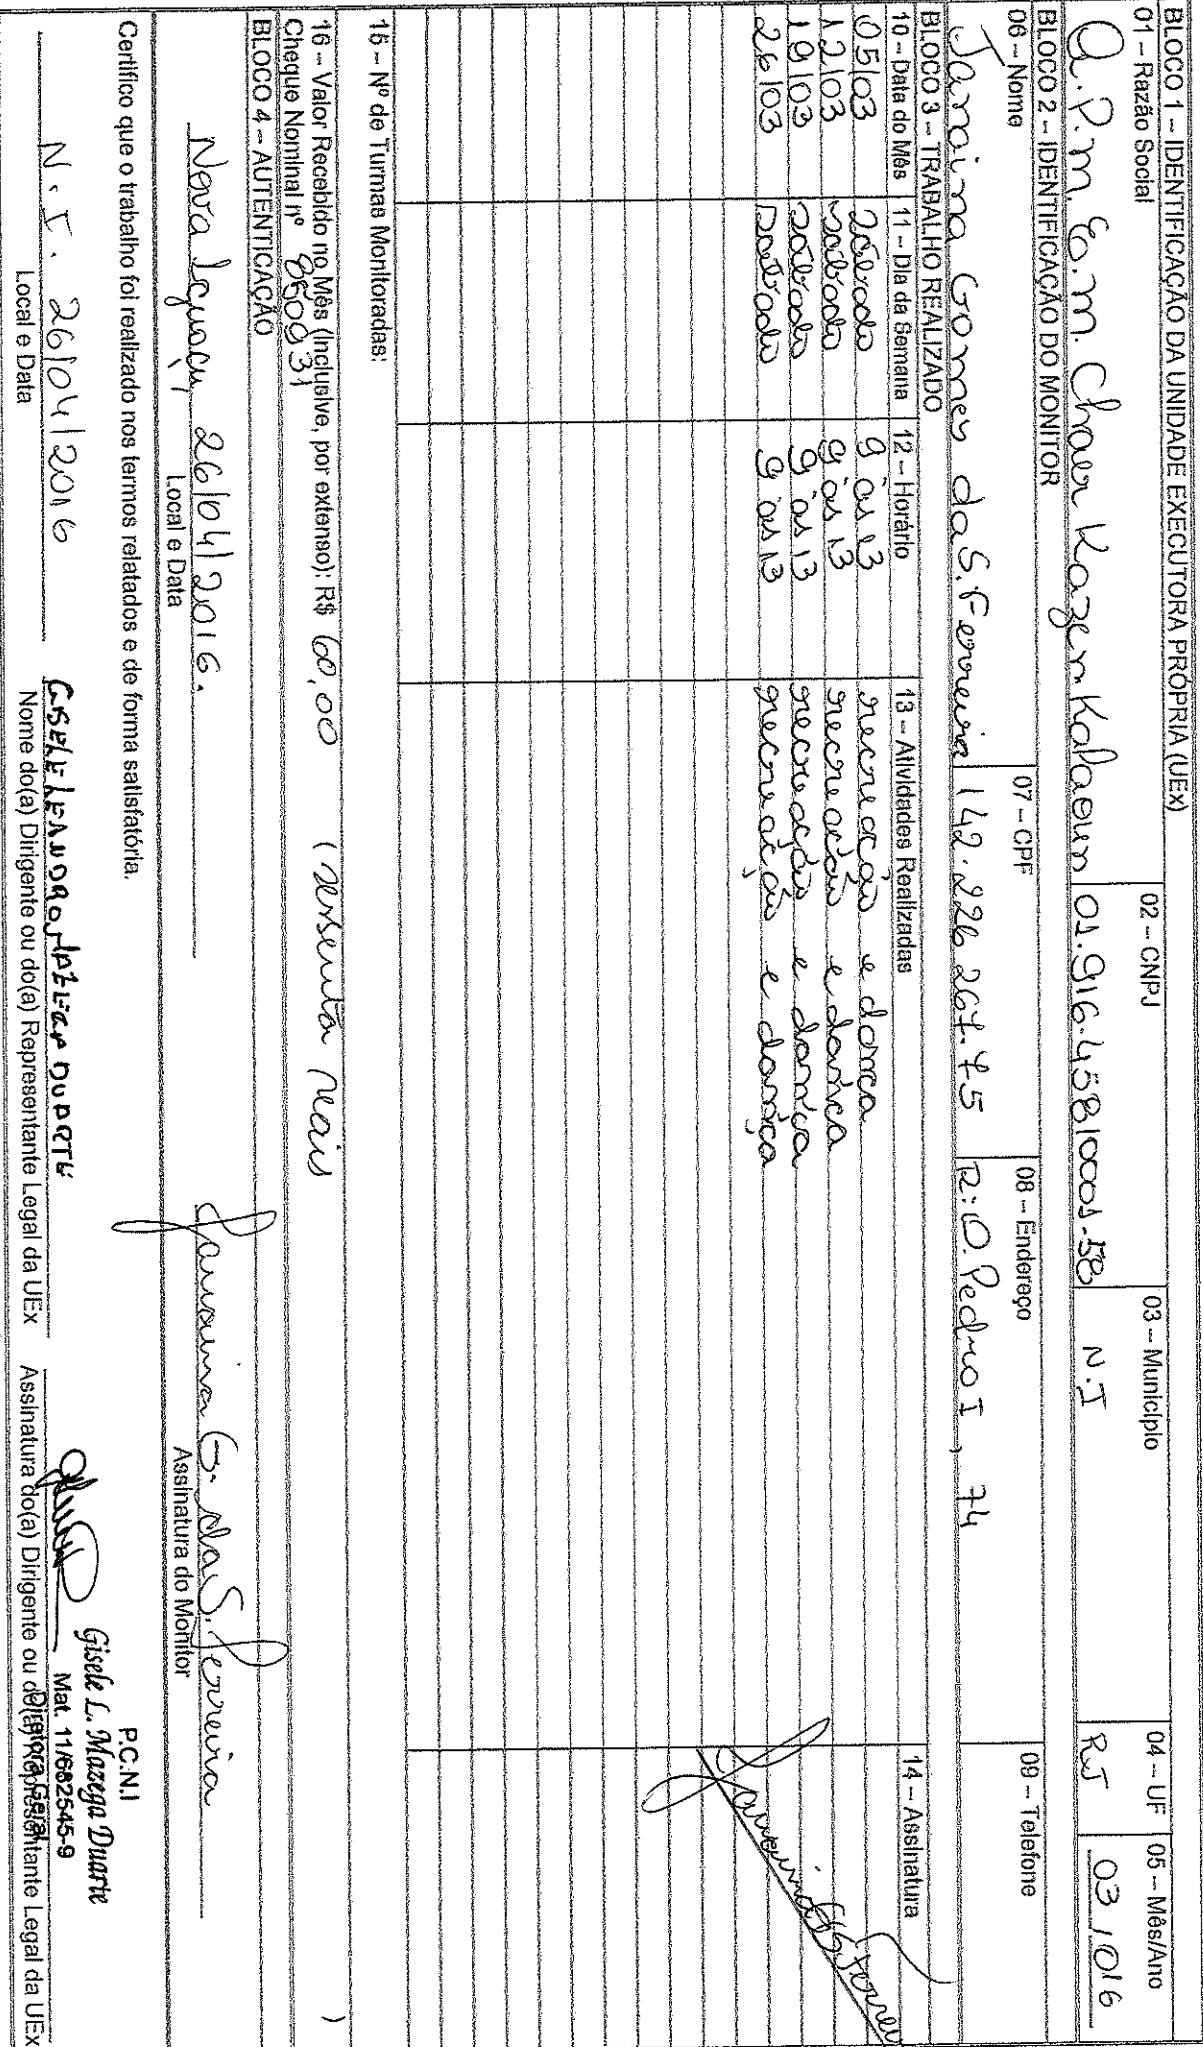 BLOCO 1 – IDENTIFICAÇÃO DA UNIDADE EXECUTORA PRÓPRIA (UEx)
01 – Razão Social 02 – CNPJ 03 – Município 04 – UF 05 – Mês/Ano
A.P.M. E.M. Chaer Kazem Kalaoum 01.916.458/0001-58 N.I RJ 03/016
BLOCO 2 – IDENTIFICAÇÃO DO MONITOR
06 – Nome 07 – CPF 08 – Endereço 09 – Telefone
Janaina Gomes da S. Ferreira 142.226 267.75 R: D. Pedro I, 74
BLOCO 3 – TRABALHO REALIZADO
10 – Data do Mês 11 – Dia da Semana 12 – Horário 13 – Atividades Realizadas 14 – Assinatura
05/03 sábado 9 às 13 recreação e dança
12/03 sábado 9 às 13 recreação e dança
19/03 sábado 9 às 13 recreação e dança
26/03 sábado 9 às 13 recreação e dança
15 – Nº de Turmas Monitoradas:
16 – Valor Recebido no Mês (Inclusive, por extenso): R$ 60,00 (sessenta reais )
Cheque Nominal nº 850931
BLOCO 4 – AUTENTICAÇÃO
Nova Iguaçu, 26/04/2016. Janaina G. da S. Ferreira
Local e Data Assinatura do Monitor
Certifico que o trabalho foi realizado nos termos relatados e de forma satisfatória.
P.C.N.I
Gisele L. Mazega Duarte
Mat. 11/682545-9
Diretora Geral
N.I. 26/04/2016 GISELE LEANDRO DUARTE
Local e Data Nome do(a) Dirigente ou do(a) Representante Legal da UEx Assinatura do(a) Dirigente ou do(a) Representante Legal da UEx